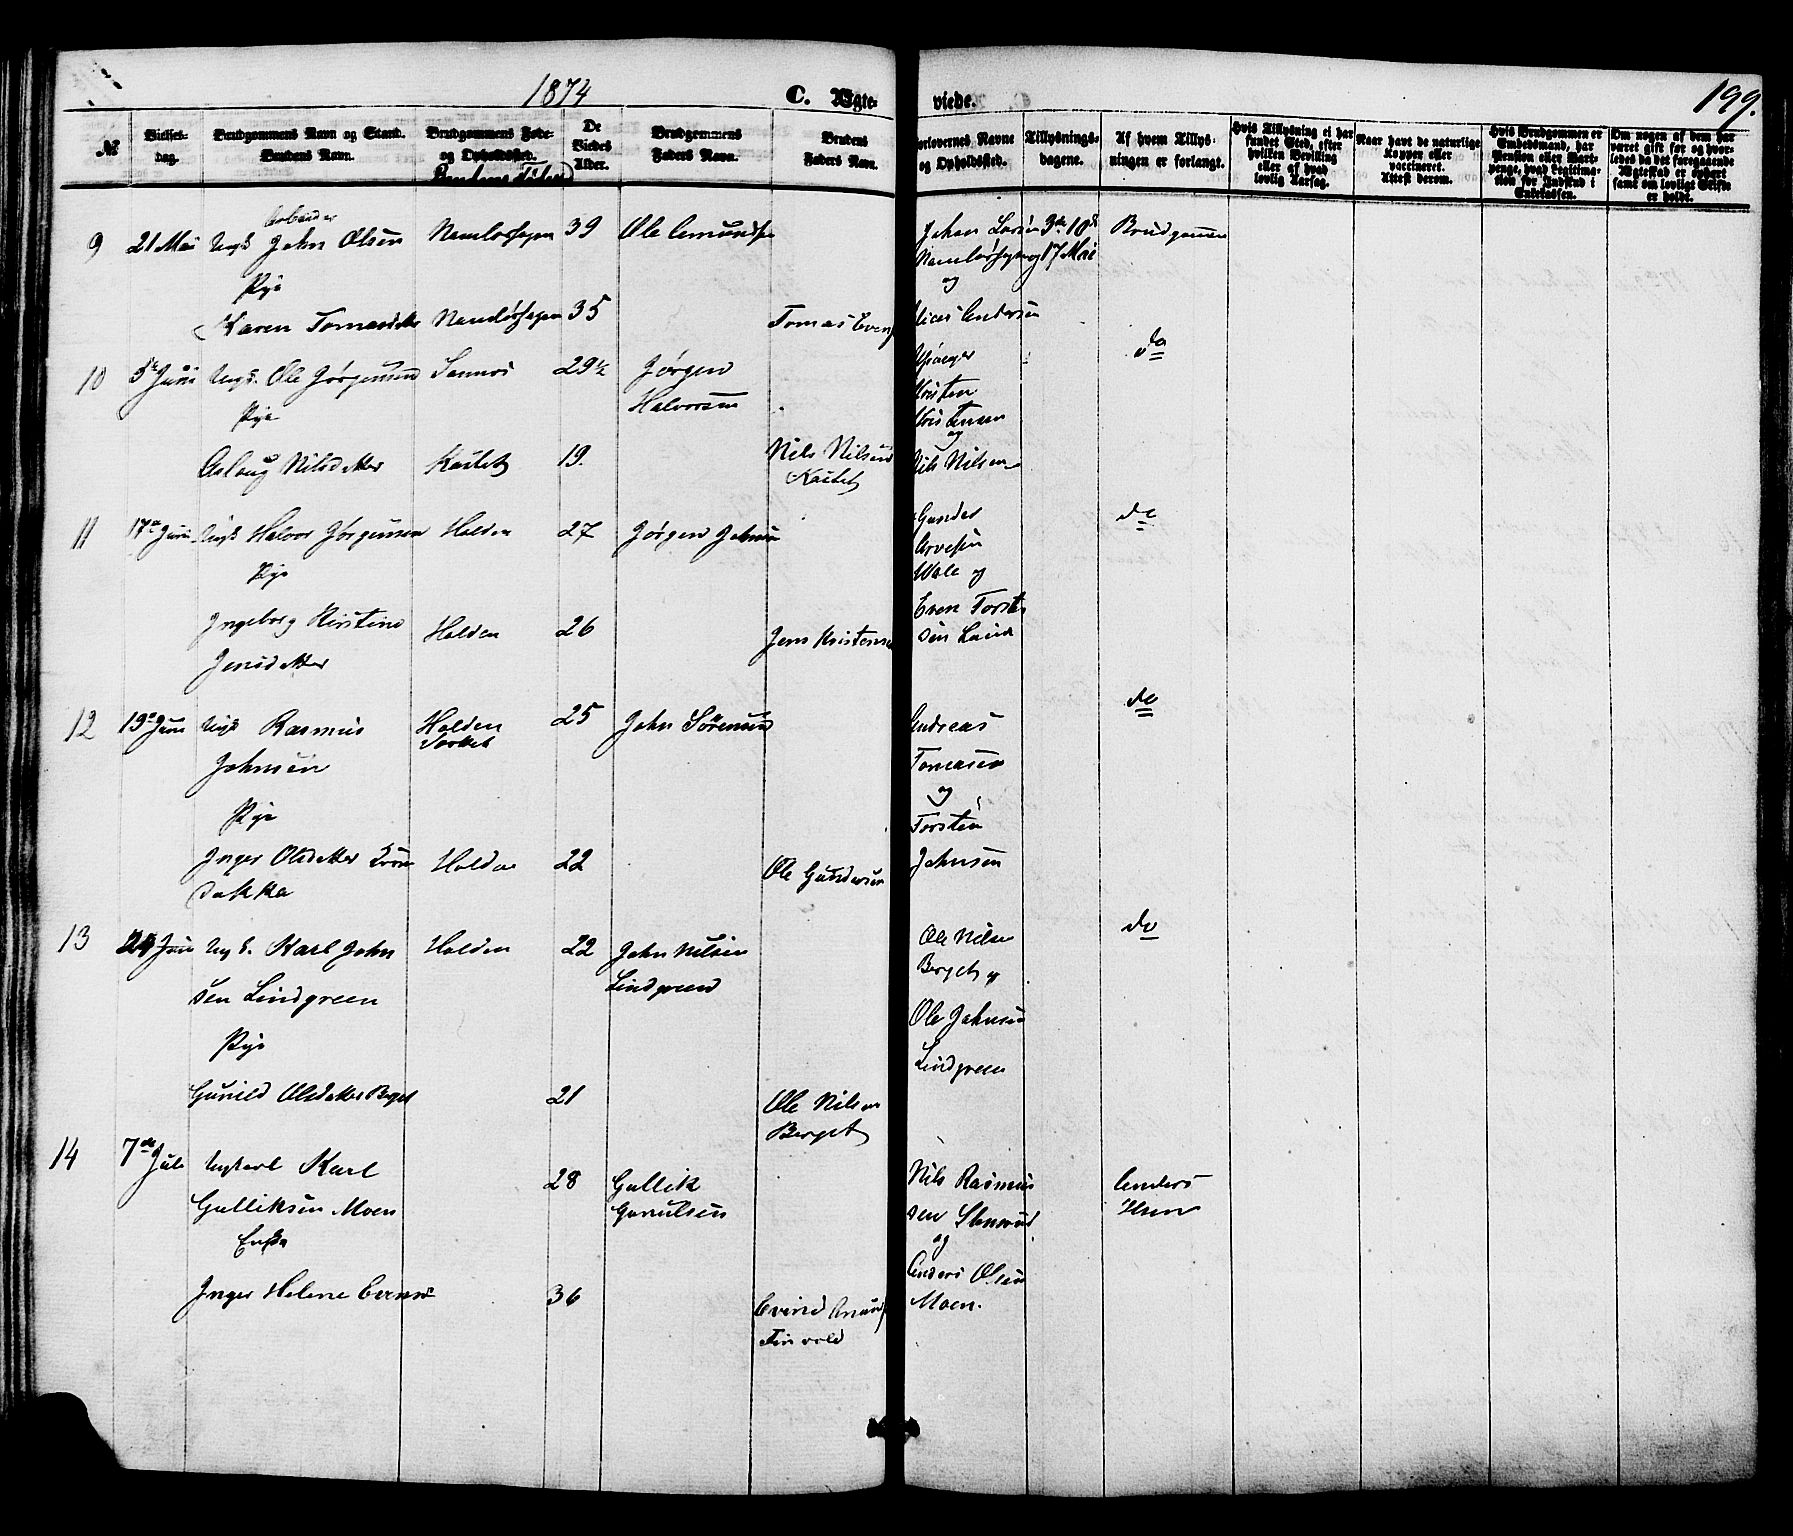 1874
C. Ægte-
viede.
199.
№
Vielses-
dag.
Brudgommens Navn og Stand.
Brudens Navn.
Brudgommens Føde-
og Opholdssted.
Brudens
De
Viedes
Alder.
Brudgommens
Faders Navn.
Brudens
Faders Navn.
Forlovernes Navne
og Opholdssted.
Tillysnings-
dagene.
Af hvem Tillys-
ningen er forlangt.
Hvis Tillysning ei har
fundet Sted, efter
hvilken Bevilling
eller af hvad
lovlig Aarsag.
Naar havt de naturlige
Kopper eller
vaccineret.
Attest derom.
Hvis Brudgommen er
Embedsmand, har
Pension eller Vart-
penge, hvad Legitima-
tion for Indskud i
Enkekassen.
Om nogen af dem har
været gift før og hvor-
ledes da det foregaaende
Ægteskab er ophørt
samt om lovligt Skifte
er holdt.
Arbeider
9 21 Mai Ungk John Olsen 39 Ole Amunds
Johan Larsen 3die 10de Brudgommen
og 17 Mai
Pige
og
Karen Tomasdatter 35 Tomas Even
Andersen
10 5te Juni Ungk. Ole Jørgensen Sannes 29½ Jørgen
do
Halvorsen
Pige
Kristen
Kristensen
og
Aslaug Nilsdatter Kastet 19. Nils Nilsen
Kastet
Nils Nilsen
11 17de Juni Ungk Halvor Jørgensen Holden 27 Jørgen Johnsen
Gunder
do
Arvesen
Pige
Wale og
Ingeborg Kirstine
Jensdatter
Holden 26 Jens Kristensen
Even Torste
sen Lund
12 19de Juni Ungk Rasmus Holden 25 John Sørensen
Andreas
do
Johnsen
Tomasen
og
Pige
Torsten
Inger Olsdatter Holden 22 Ole Gundersen
Johnsen
dokka
13 24 Juni Ungk. Karl John Holden 22 John Nilsen
sen Lindgreen Lindgreen
Ole Nilsen
do
Berget og
Pige
Ole Johnsen
Lindgreen
Gunild Olsdatter Berget 21 Ole Nilsen
Berget
14 7de Juli Ungkarl Karl 28 Gullik
Nils Rasmus Anders
Gulliksen Moen Gunulsen
sen
og
Enke
Anders Olsen
Inger Helene 36 Evind
Moen.